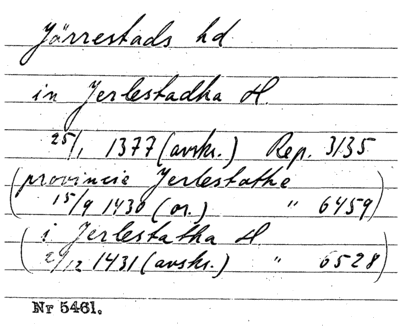 Järrestads hd
in Jerlestadha H.
25/1 1377 (avskr.) Rep. 3135
(provincie Jerlestathe
15/9 1430 (or.) " 6459)
(i Jerlestatha H
/12 1431 (avskr.) " 6528)
Nr 5461.